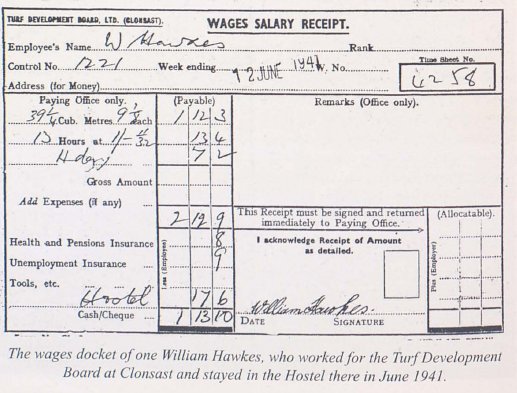 TURF DEVELOPMENT BOARD, LTD. (CLONSAST).
WAGES SALARY RECEIPT.
Employee's Name W Hawkes Rank
Control No. 1221 Week ending 12 JUNE 1941 W. No. Time Sheet No.
4258
Address (for Money)
Paying Office only. (Payable) Remarks (Office only).
39¼ Cub. Metres 9 Each 1 12 3
13 Hours at 13 4
H day 7 2
Gross Amount
Add Expenses (if any)
2 12 9 This Receipt must be signed and returned immediately to Paying Office. (Allocatable).
Health and Pensions Insurance 8 I acknowledge Receipt of Amount as detailed.
Unemployment Insurance 9
Less (Employee) Plus (Employer)
Tools, etc.
Hostel 17 6
William Hawkes.
Cash/Cheque 1 13 10 DATE SIGNATURE
The wages docket of one William Hawkes, who worked for the Turf Development
Board at Clonsast and stayed in the Hostel there in June 1941.